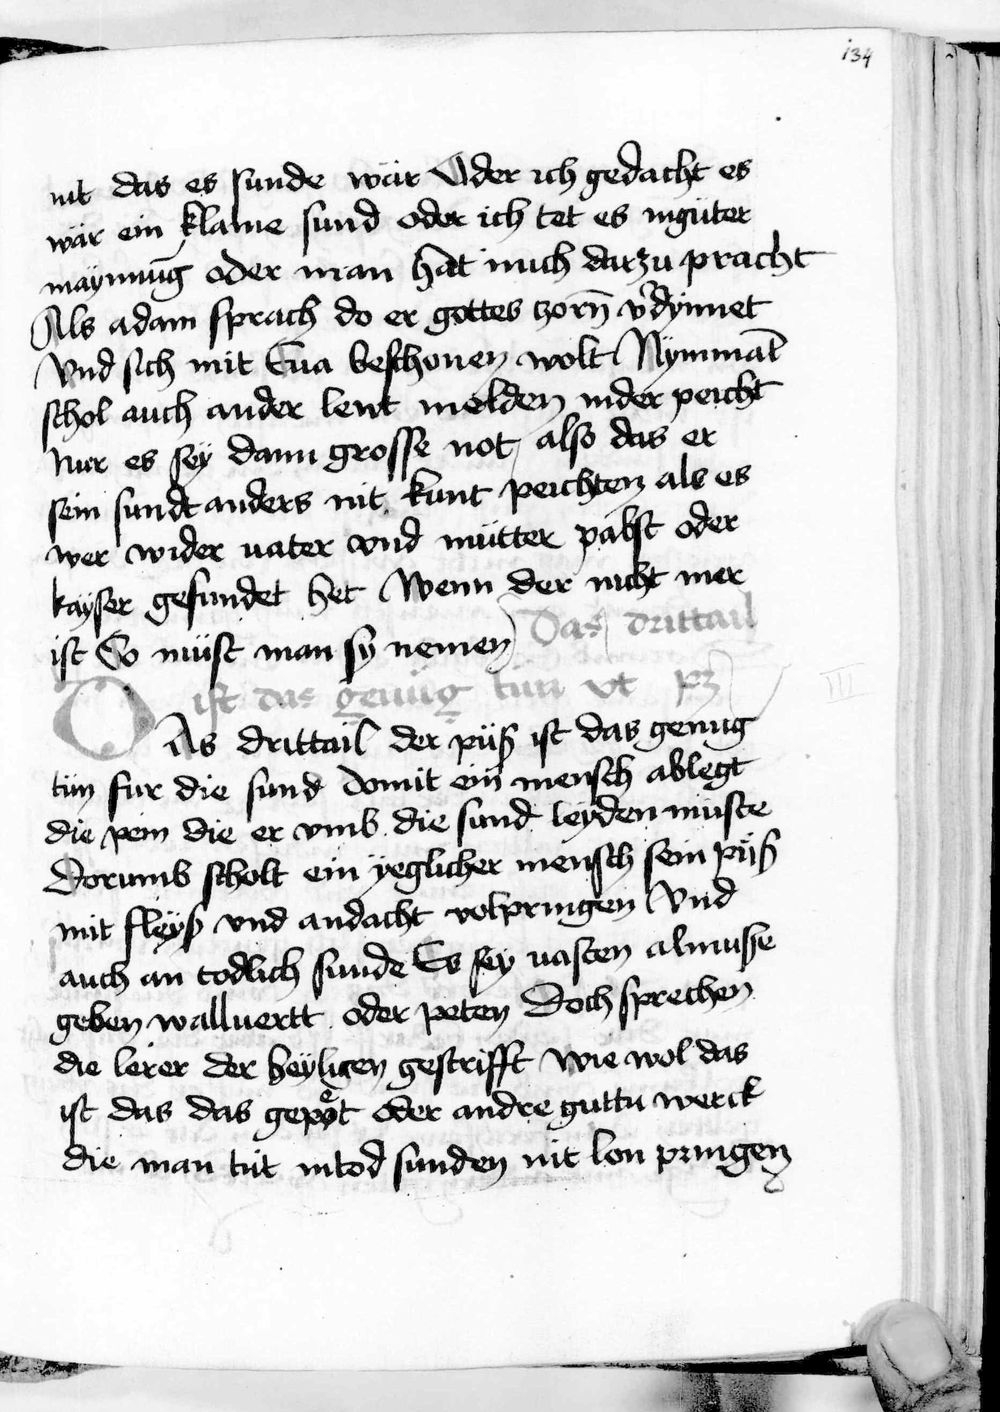 134
nit das es sunde wär Oder ich gedacht es
wär ein klaine sund oder ich tet es inguter
maynnūg oder man hat mich darzu pracht
Als adam sprach do er gottes zorn̄ v'dynnet
Vnd sich mit Eua beschonen wolt Nymmāt
schol auch ander lewt melden inder peicht
Nur es sey dann grosse not also das er
sein sundt anders nit kunt peichten als es
wer wider uater vnd mütter pabst oder
kayser gesundet het Wenn der nicht mer
ist So müst man sy nemen Das drittail
ist das genüg tün vt pꝫ
III
DAs drittail der püß ist das genug
tün fur die sund Domit ein mensch ablegt
die pein die er vmb die sund leyden müste
Dorumb scholt ein yeglicher mensch sein püß
mit fleyß vnd andacht volpringen Vnd
auch an todlich sunde Es sey uasten almusse
geben walluertt oder peten Doch sprechen
die lerer der heyligen gestrifft Wie wol das
ist das das gepoͤt oder andre guttu werck
die man tüt intod sunden nit lon pringen